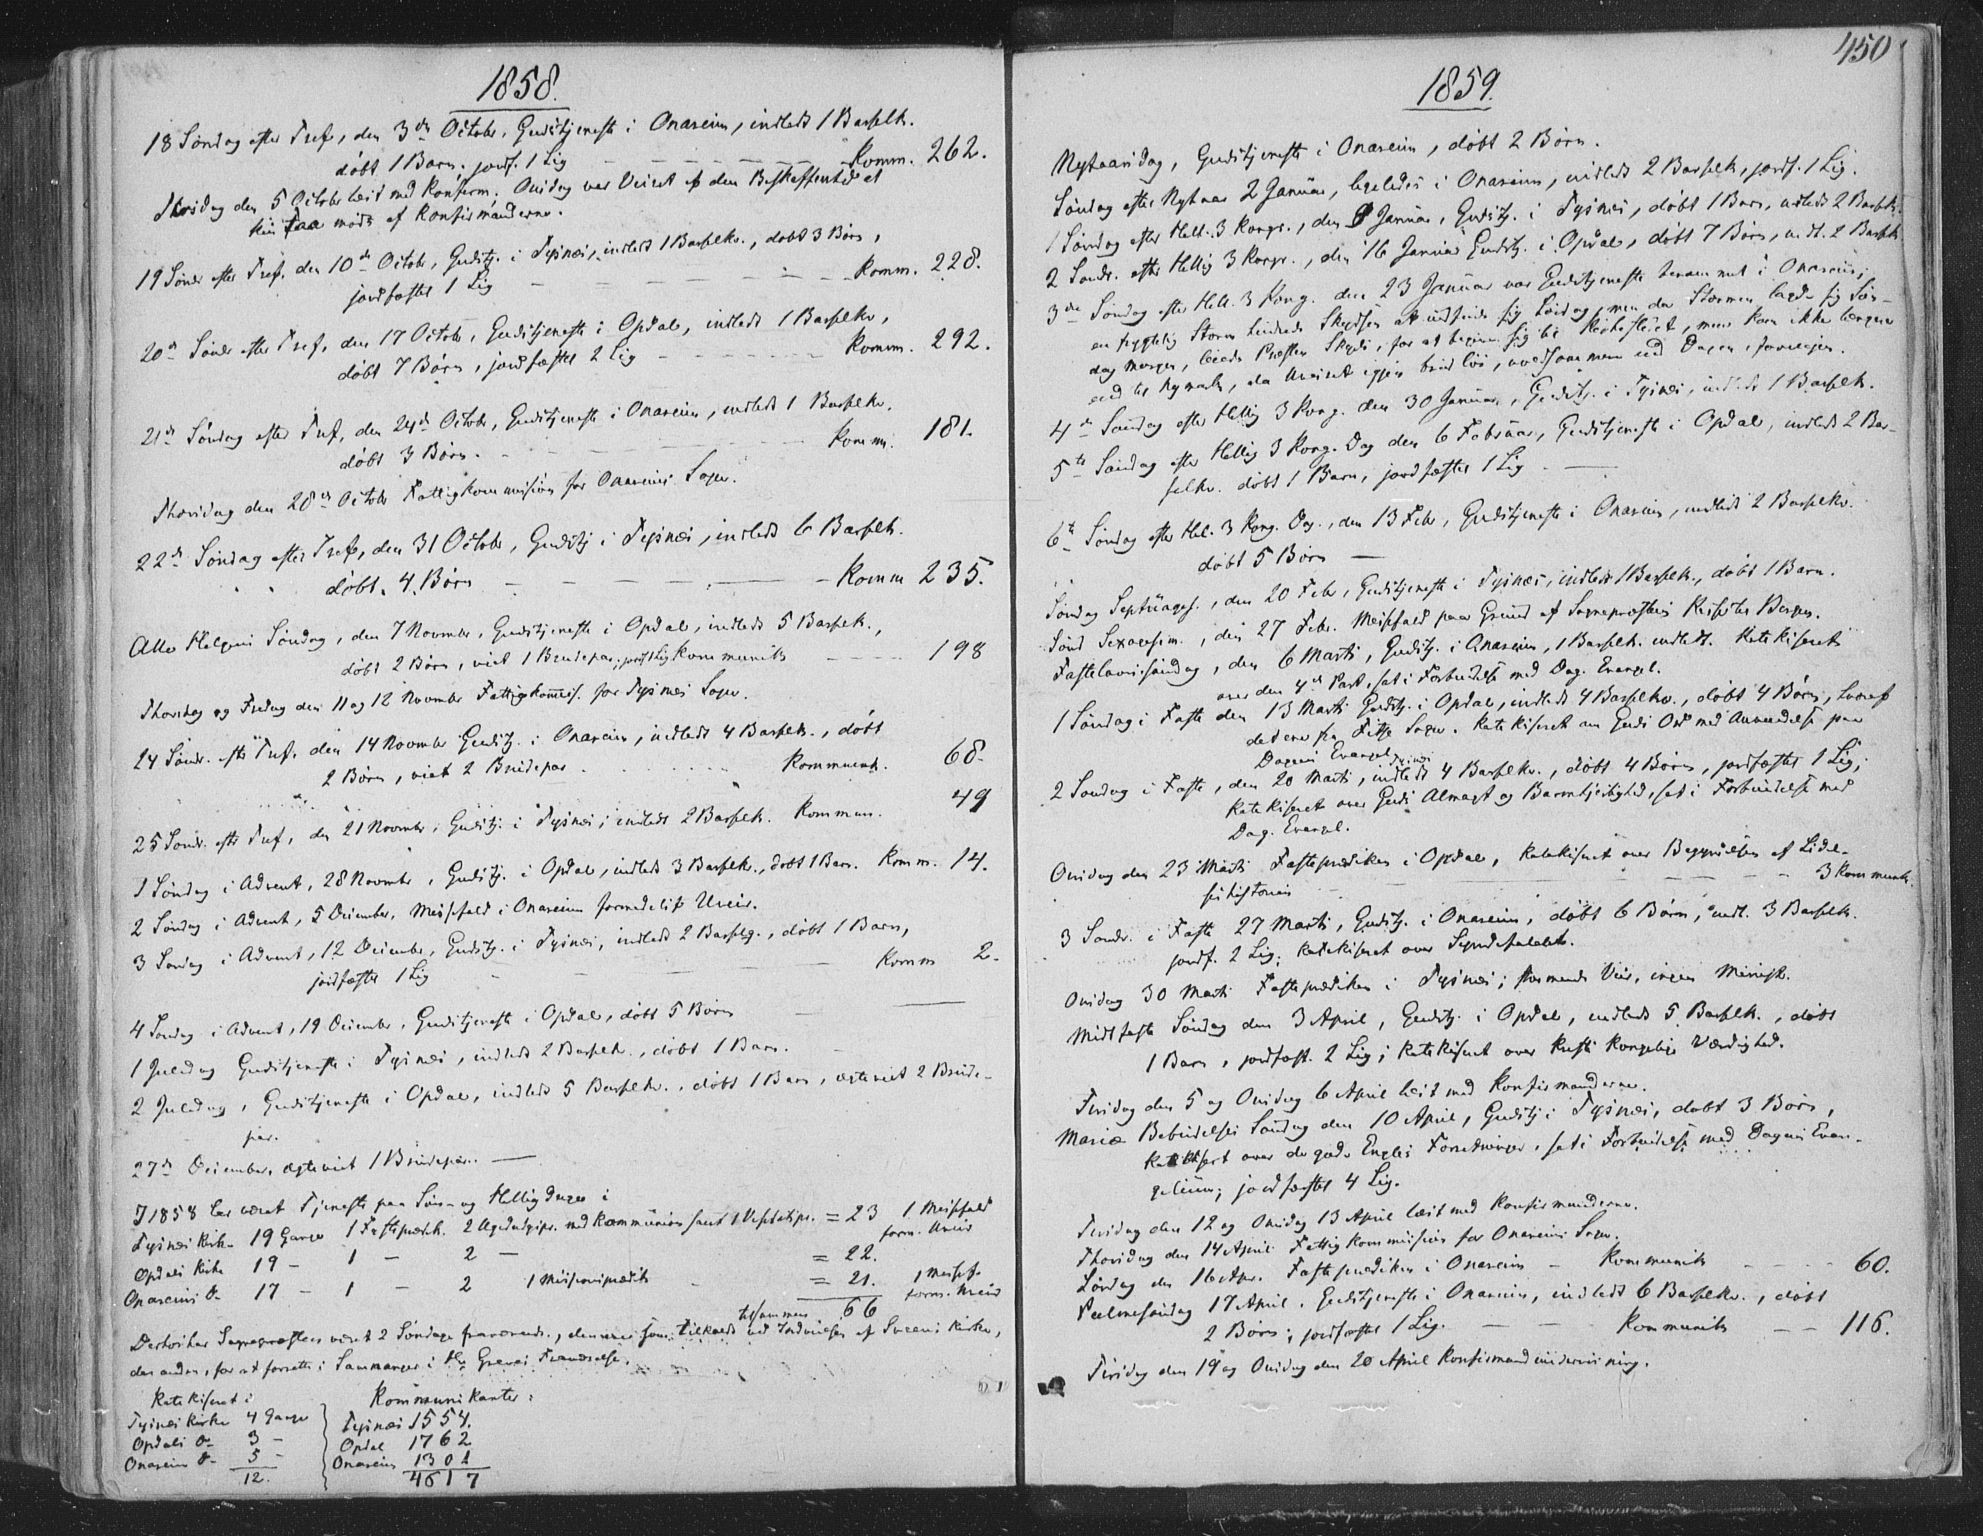 1858.
18 Søndag efter Tref, den 3de Octobr, Gudstjeneste i Onareim, indledt 1 Barselk.
døbt 1 Barn; jordf. 1 Lig — Komm. 262.
den 5 Octobr læst med Konfirm; Onsdag var Veiret af den Beskaffenhed at
kun faa mødte af Konfirmanderne.
19 Sønd. efter Tref. den 10de Octobr, Gudstj. i Tysnæs, indledt 1 Barselkv., døbt 3 Børn,
jordfæstet 1 Lig — Komm. 228.
20de Sønd. efter Tref. den 17 Octobr, Gudstjeneste i Opdal, indledt 1 Barselkv,
døbt 7 Børn, jordfæstet 2 Lig — Komm. 292.
21de Søndag efter Tref, den 24de Octobr, Gudstjeneste i Onareim, indledt 1 Barselkv.
døbt 3 Børn. — Komm. 181.
Thorsdag den 28de Octobr Fattigkommission for Onareims Sogn.
22de Søndag efter Tref, den 31 Octobr, Gudstj i Tysnæs, indledt 6 Barselk.
døbt 4 Børn — Komm 235.
Alle Helgens Søndag, den 7 Novembr, Gudstjeneste i Opdal, indledt 5 Barselk.,
døbt 2 Børn, viet 1 Brudepar; jordf 1 Lig Kommunik — 198
Thorsdag og Fredag den 11 og 12 Novembr Fattigkommis. for Tysnæs Sogn.
24 Sønd. efter Tref. den 14 Novembr Gudstj. i Onareim, indledt 4 Barselk., døbt
2 Børn, viet 2 Brudepar Kommunik. 68.
25 Sønd. efter Tref, den 21 Novembr, Gudstj. i Tysnæs, indledt 2 Barselk. Kommun. 49
1 Søndag i Advent, 28 Novembr, Gudstj. i Opdal, indledt 3 Barselkv., døbt 1 Barn. Komm. 14.
2 Søndag i Advent, 5 December, Messefald i Onareim formedelst Uveir.
3 Søndag i Advent, 12 December, Gudstj. i Tysnæs, indledt 2 Barselq., døbt 1 Barn,
jordfæstet 1 Lig — Komm 2.
4 Søndag i Advent, 19 December, Gudstjeneste i Opdal, døbt 5 Børn —
1 Juledag Gudstjeneste i Tysnæs, indledt 2 Barselk., døbt 1 Barn.
2 Juledag, Gudstjeneste i Opdal, indledt 5 Barselkv., døbt 1 Barn, ægteviet 2 Brude-
par.
27de December, ægteviet 1 Brudepar. —
I 1858 har været Tjeneste paa Søn- og Helligdage i
Tysnæs Kirke 19 Gange 1 Fasteprædik. 2 med Kommunion samt 1 = 23 1 Messefald form. Uveir
Opdals Kirke 19 — 1 — 2 — = 22.
Onareims do 17 — 1 — 2 1 Missionsprædik = 21. 1 Messef. form. Uveir
tilsammen 66
Derhos har Sognepræsten været 2 Søndage fraværende, den ene som tilkaldt ved Indvielsen af Kirke,
den anden, for at forrette i Sammanger i Hr Fraværelse.
Katekiseret i
Tysnæs Kirke 4 Gange
Opdals do 3 —
Onareim do 5 —
12.
Kommunikanter:
Tysnæs 1554.
Opdal 1762
Onareim 1301
4617
450
1859.
Nytaarsdag, Gudstjeneste i Onareim, døbt 2 Børn.
Søndag efter Nytaar 2 Januar, ligeledes i Onareim, indledt 2 Barselk, jordf. 1 Lig.
1 Søndag efter Hell. 3 Konger, den 9 Januar, Gudstj. i Tysnæs, døbt 1 Barn, indledt 2 Barselk.
2 Sønd. efter Hellig 3 Konger, den 16 Januar Gudstj. i Opdal, døbt 7 Børn, indl. 2 Barselk.
3die Søndag efter Hell. 3 Kong. den 23 Januar var Gudstjeneste berammet i Onareim;
en frygtelig Storm hindrede Skydsen at indfinde sig Lørdag, men da Stormen lagde sig Søn-
dag Morgen, leiede Præsten Skyds, for at begive sig til Kirkestedet, men kom ikke længere
end til, da Uveiret igjen brød løs, vedvarende ud Dagen, foraarsagen.
4de Søndag efter Hellig 3 Kong. den 30 Januar, Gudstj. i Tysnæs, indledt 1 Barselk.
5te Søndag efter Hellig 3 Kong. Dag den 6 Februar, Gudstjeneste i Opdal, indledt 2 Bar-
selkv. døbt 1 Barn, jordfæstet 1 Lig —
6te Søndag efter Hel. 3 Kong. Dag, den 13 Febr, Gudstjeneste i Onareim, indledt 2 Barselkv.
døbt 5 Børn —
Søndag Septuages., den 20 Febr, Gudstjeneste i Tysnæs, indledt 1 Barselk., døbt 1 Barn.
Sønd Sexagesim., den 27 Febr. Messefald paa Grund af Sognepræstens Reise til Bergen.
Fastelavnssøndag, den 6 Marts, Gudstj. i Onareim, 1 Barselk. indledt. Katekiseret
over den 4de Part, sat i Forbindelse med Dag. Evangel.
1 Søndag i Faste den 13 Marts Gudstj. i Opdal, indledt 4 Barselkv., døbt 4 Børn, hvoraf
det ene fra Fitje Sogn. Katekiseret om Guds Ord med Anvendelse paa
Dagens Evangel.
2 Søndag i Faste, den 20 Marts, indledt 4 Barselkv., døbt 4 Børn, jordfæstet 1 Lig;
Katekiseret over Guds Almagt og Barmhjertighed, sat i Forbindelse med
Dag. Evangel.
Onsdag den 23 Marts Fasteprædiken i Opdal, Katekiseret over Begyndelsen af Lidel-
seshistorien — 3 Kommunik.
3 Sønd. i Faste 27 Marts, Gudstj. i Onareim, døbt 6 Børn, indl. 3 Barselk.
jordf. 2 Lig; katekiseret over Syndefaldet.
Onsdag 30 Marts Fasteprædiken i Tysnæs; stormende Veir, ingen Mennesk.
Midtfaste Søndag den 3 April, Gudstj. i Opdal, indledt 5 Barselk., døbt
1 Barn, jordfæst. 2 Lig; katekiseret over Kristi Kongelige Værdighed.
Tirsdag den 5 og Onsdag 6 April læst med Konfirmanderne.
Mariæ Bebudelses Søndag den 10 April, Gudstj i Tysnæs, døbt 3 Børn,
Katekisert over de gode Engles Forretninger, sat i Forbindelse med Dagens Evan-
gelium; jordfæstet 4 Lig.
Tirsdag den 12 og Onsdag 13 April læst med Konfirmanderne.
Thorsdag den 14 April Fattigkommission for Onareims Sogn.
Lørdag den 16 Apr. Fasteprædiken i Onareim — Kommunik — 60.
Palmesøndag 17 April, Gudstjeneste i Onareim, indledt 6 Barselkv., døbt
2 Børn; jordfæstet 1 Lig. — Kommunik — 116.
Tirsdag den 19 og Onsdag den 20 April Konfirmandundervisning.